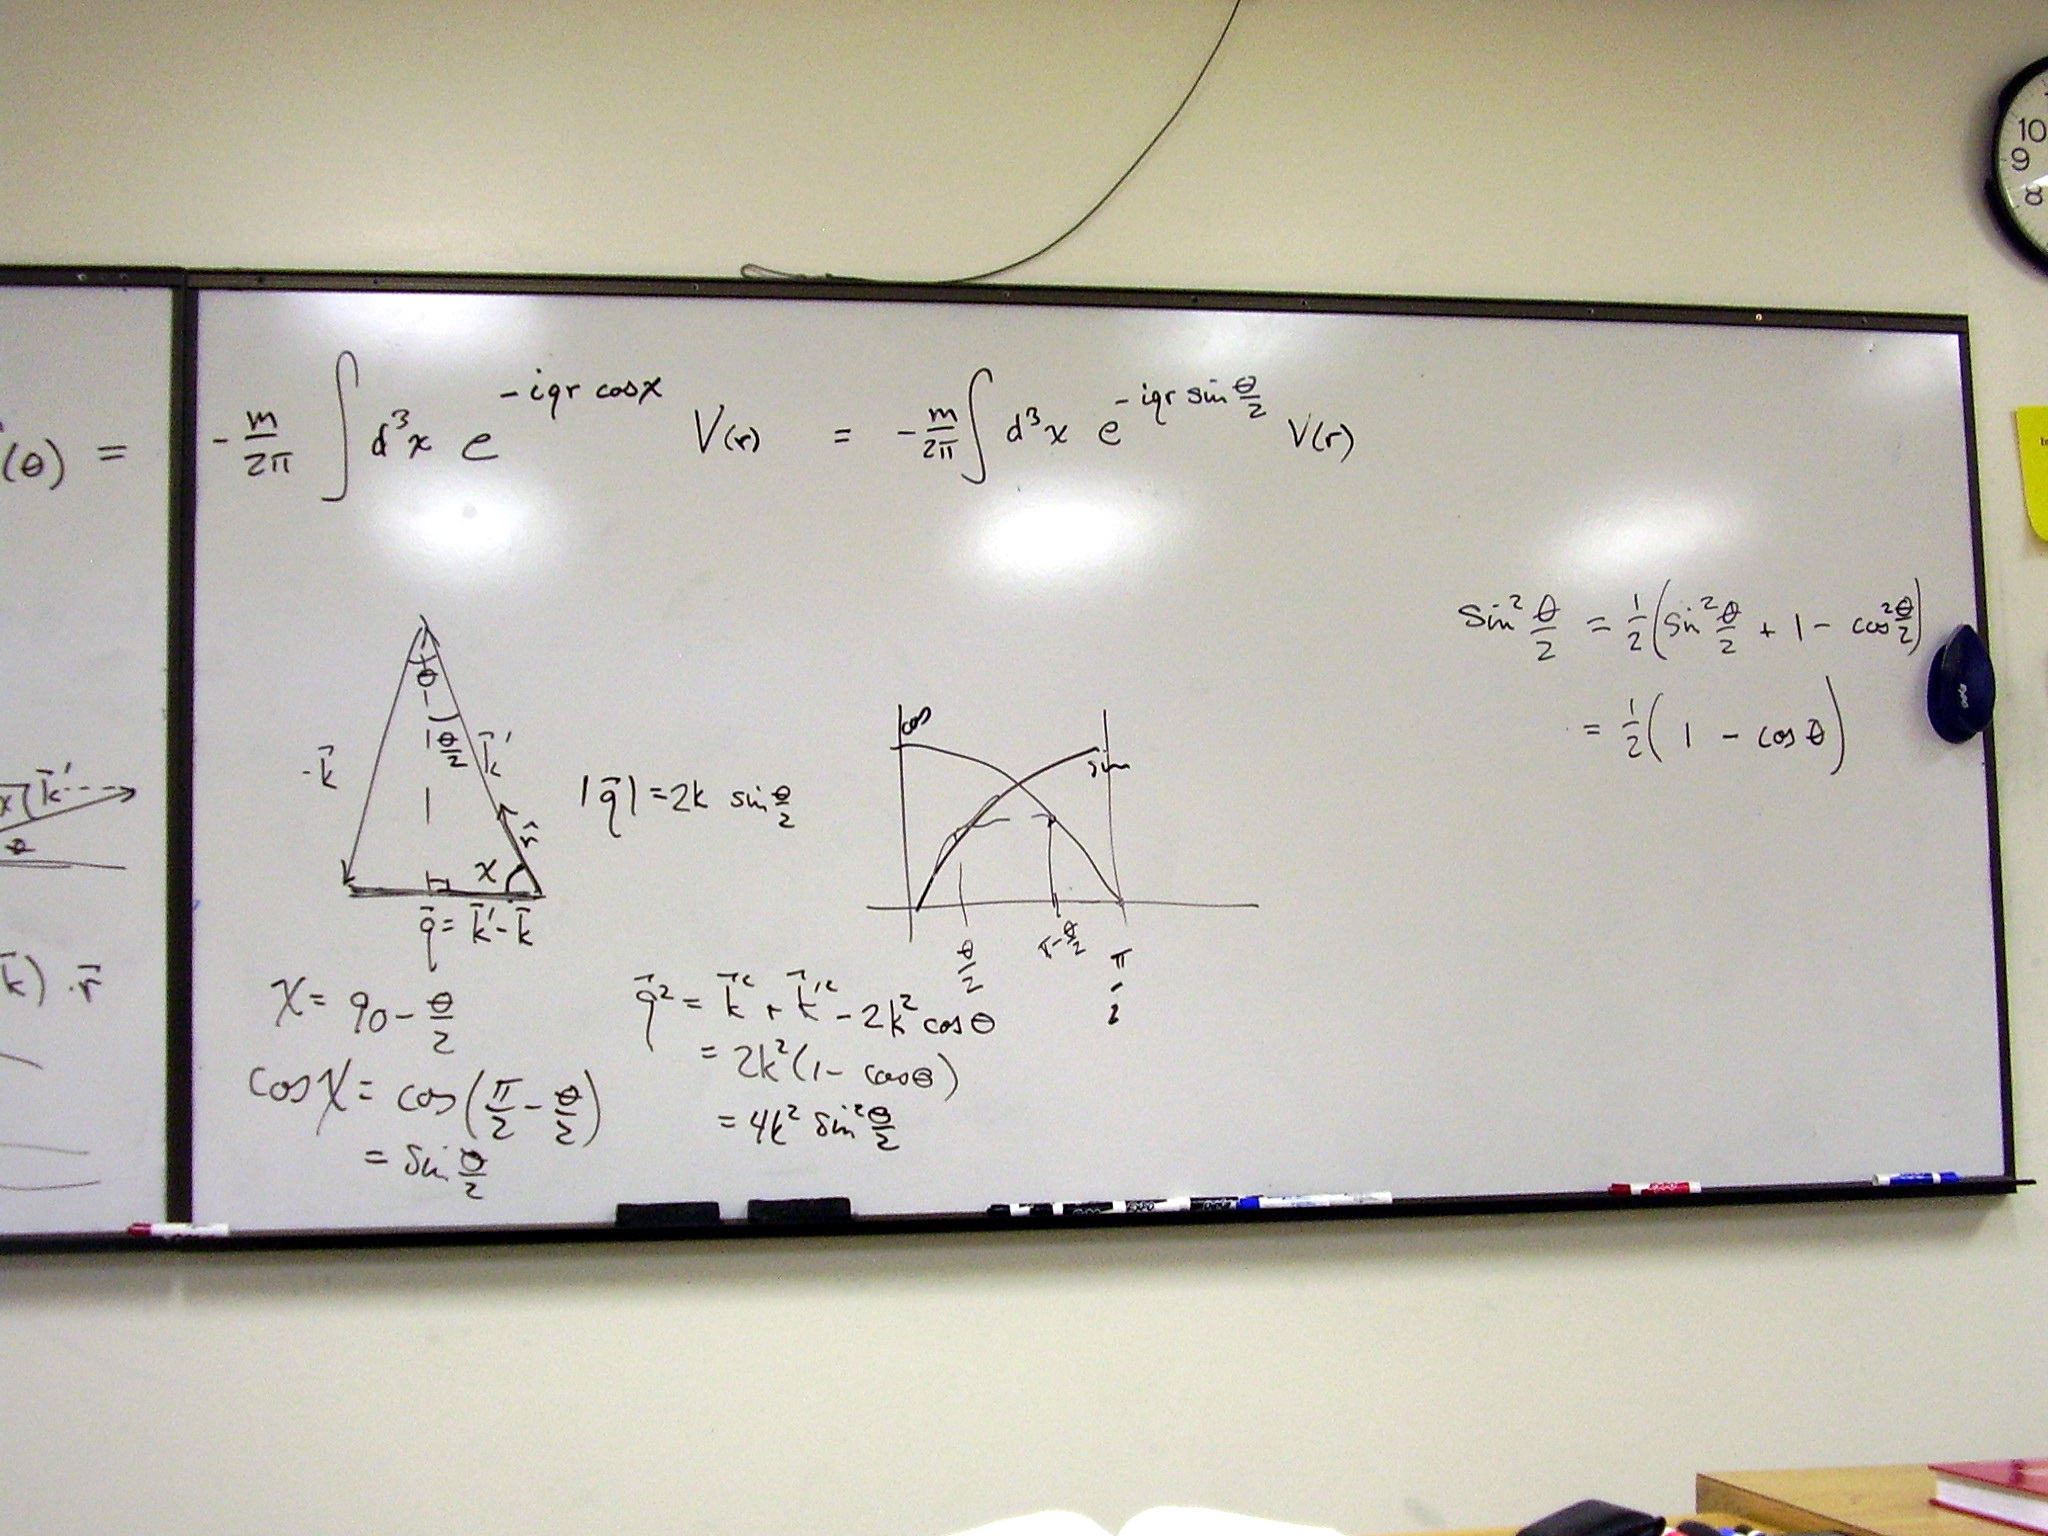 (θ) = -m/2π ∫ d³x e^(-iqr cosχ) V(r) = -m/2π ∫ d³x e^(-iqr sin θ/2) V(r)
sin² θ/2 = 1/2 (sin² θ/2 + 1 - cos² θ/2)
= 1/2 (1 - cos θ)
θ
θ/2
-k⃗
k⃗'
r̂
χ
q⃗ = k⃗' - k⃗
|q⃗| = 2k sin θ/2
cos
sin
θ/2
π-θ/2
π/2
χ k⃗'
θ
k⃗) · r⃗
χ = 90 - θ/2
cos χ = cos(π/2 - θ/2)
= sin θ/2
q⃗² = k⃗² + k⃗'² - 2k² cos θ
= 2k²(1 - cos θ)
= 4k² sin² θ/2
10
9
8